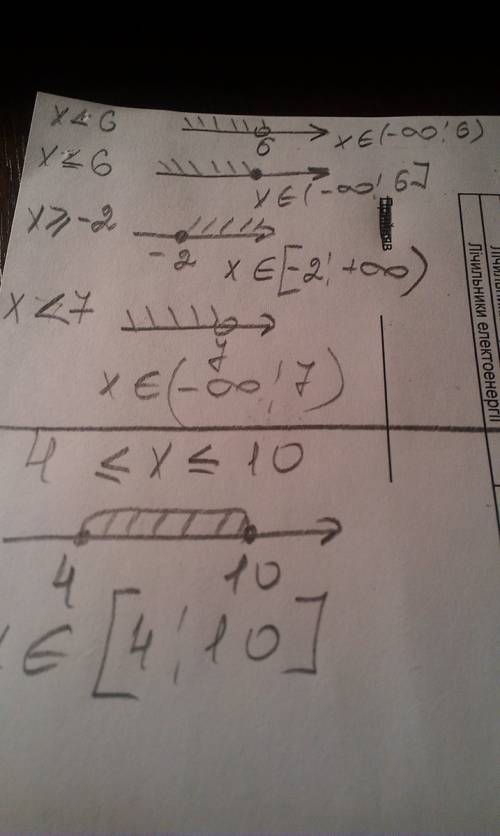 x < 6
6
x ∈ (-∞; 6)
x ≤ 6
x ∈ (-∞; 6]
x ≥ -2
-2
x ∈ [-2; +∞)
x < 7
7
x ∈ (-∞; 7)
4 ≤ x ≤ 10
4 10
x ∈ [4; 10]
Лічильники електоенергії